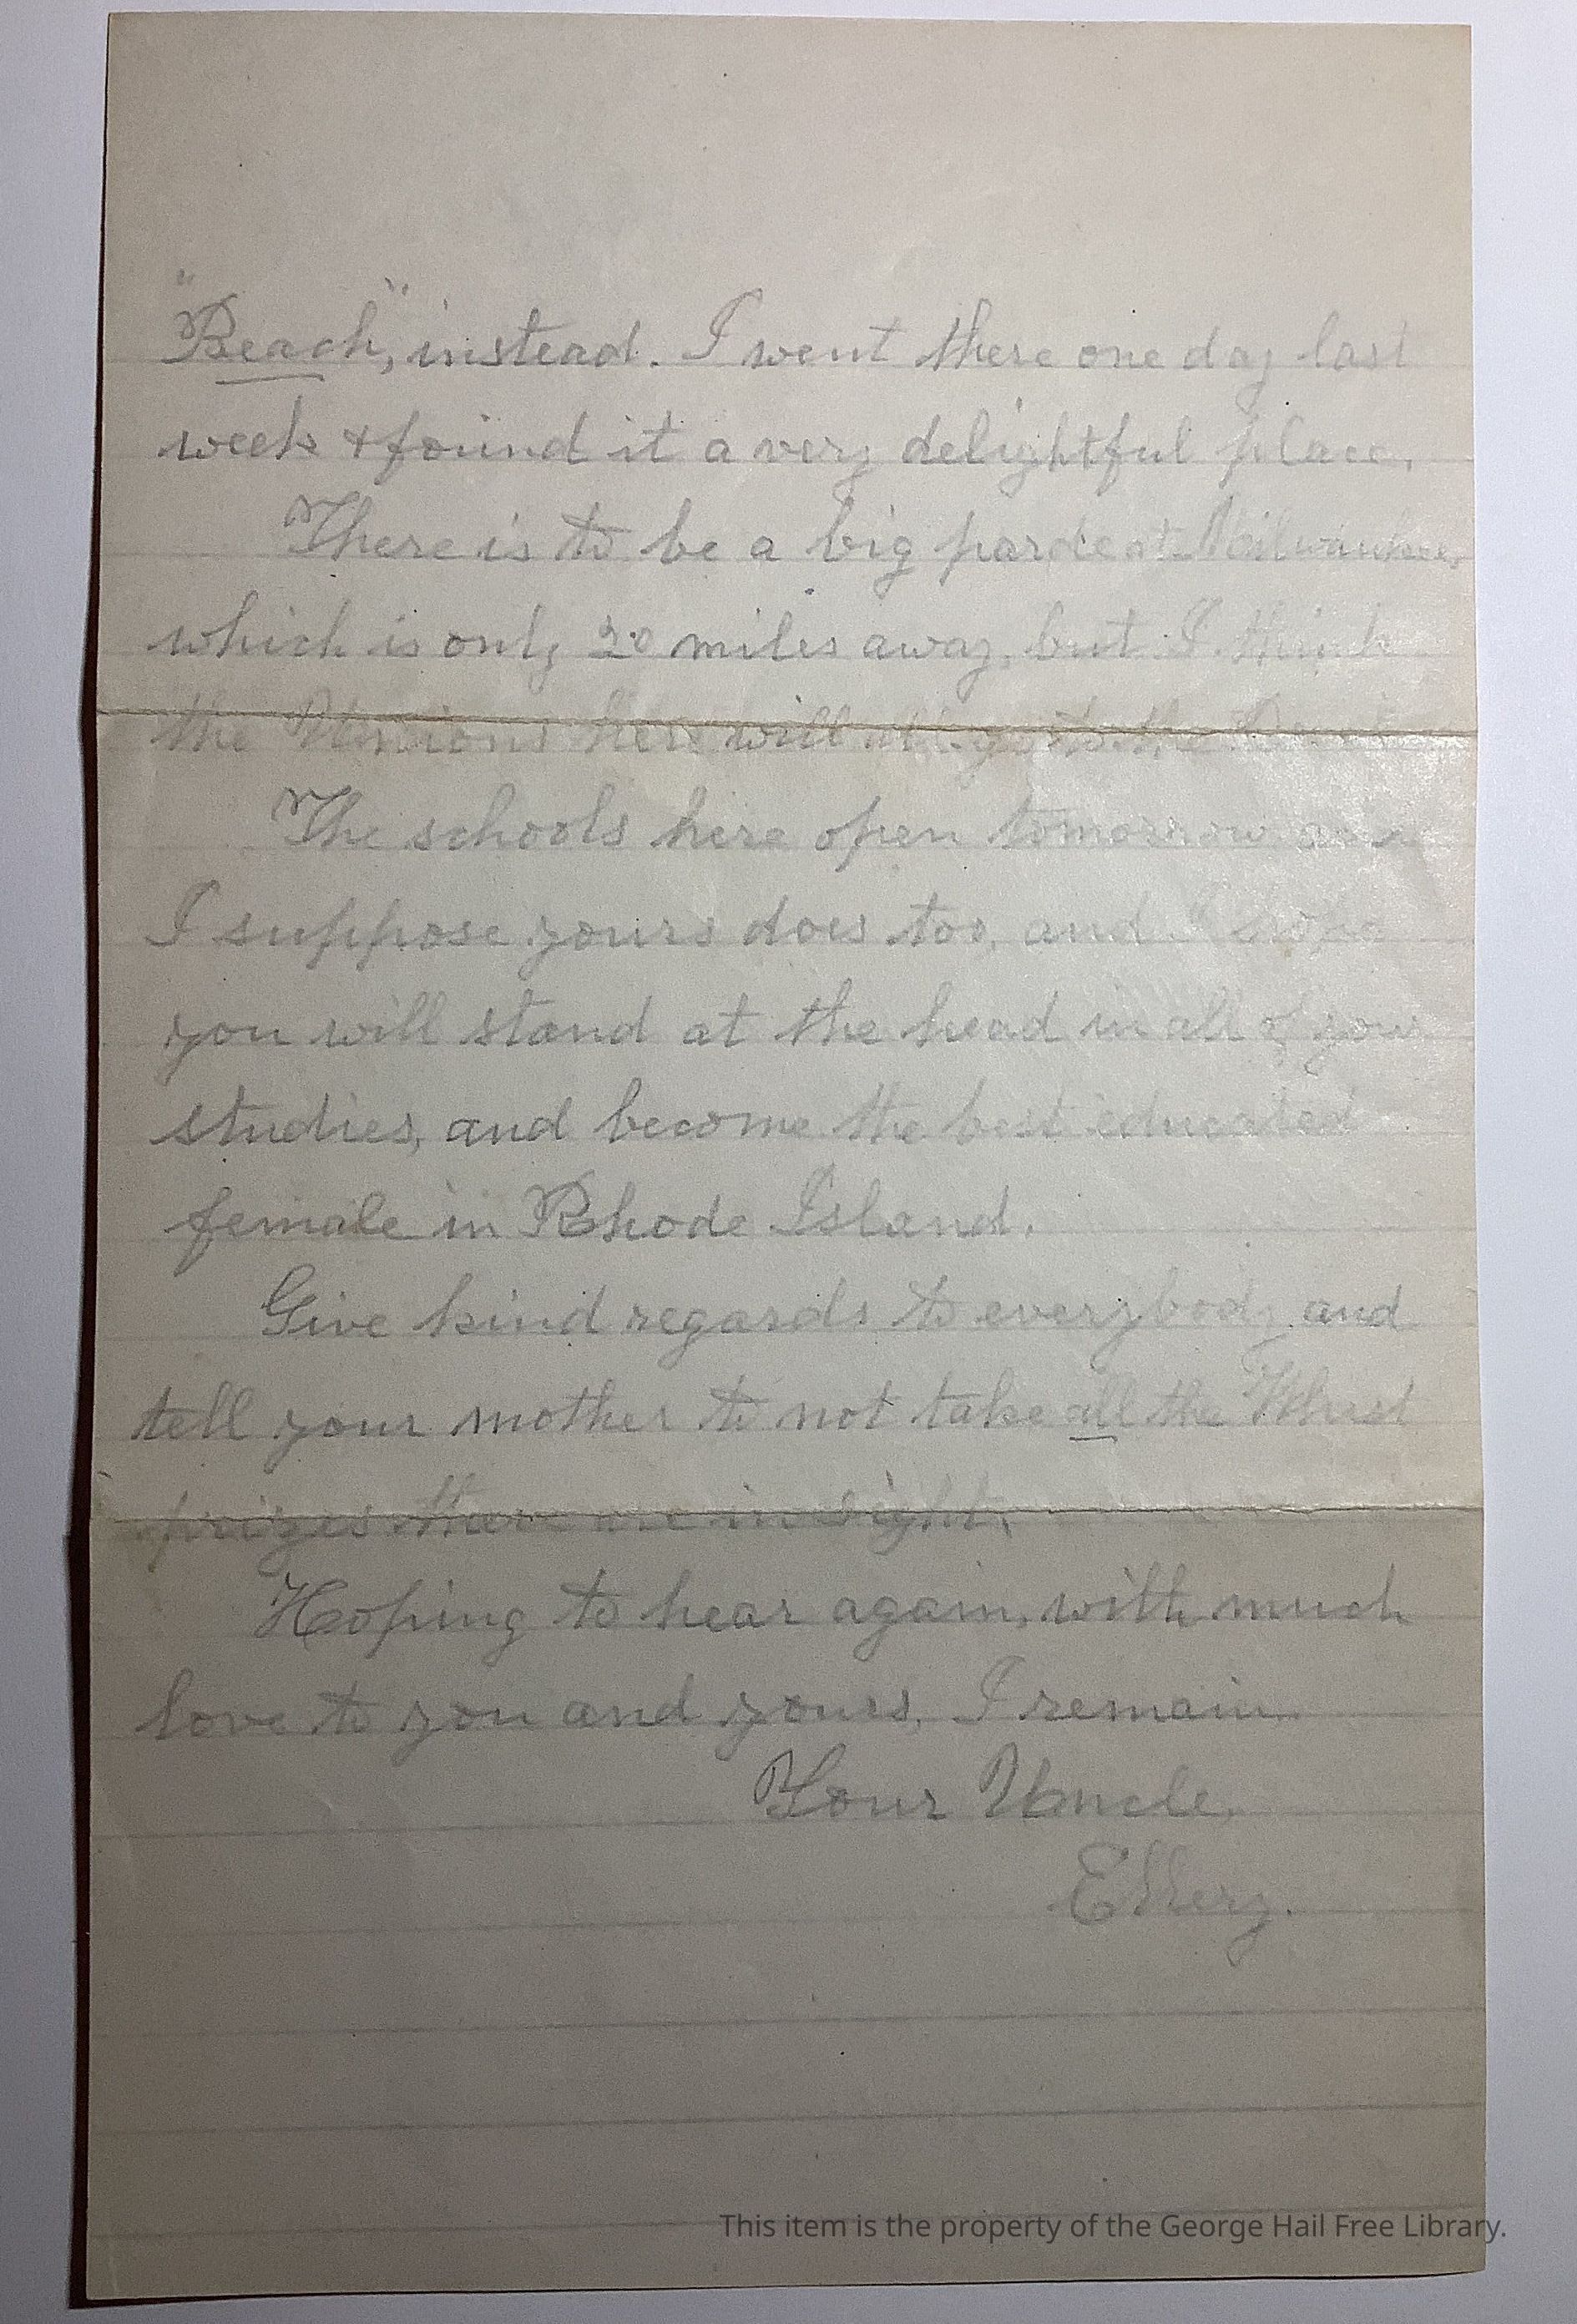 "Beach", instead. I went there one day last
week & found it a very delightful place.
There is to be a big parde at Milwaukee,
which is only 20 miles away, but I think
the Unions here will all go to the
The schools here open tomorrow and
I suppose yours does too, and I hope
you will stand at the head in all of your
studies, and become the best educated
female in Rhode Island.
Give kind regards to everybody and
tell your mother to not take all the Whist
prizes there are in sight.
Hoping to hear again, with much
love to you and yours, I remain
Your Uncle,
Ellery.
This item is the property of the George Hail Free Library.